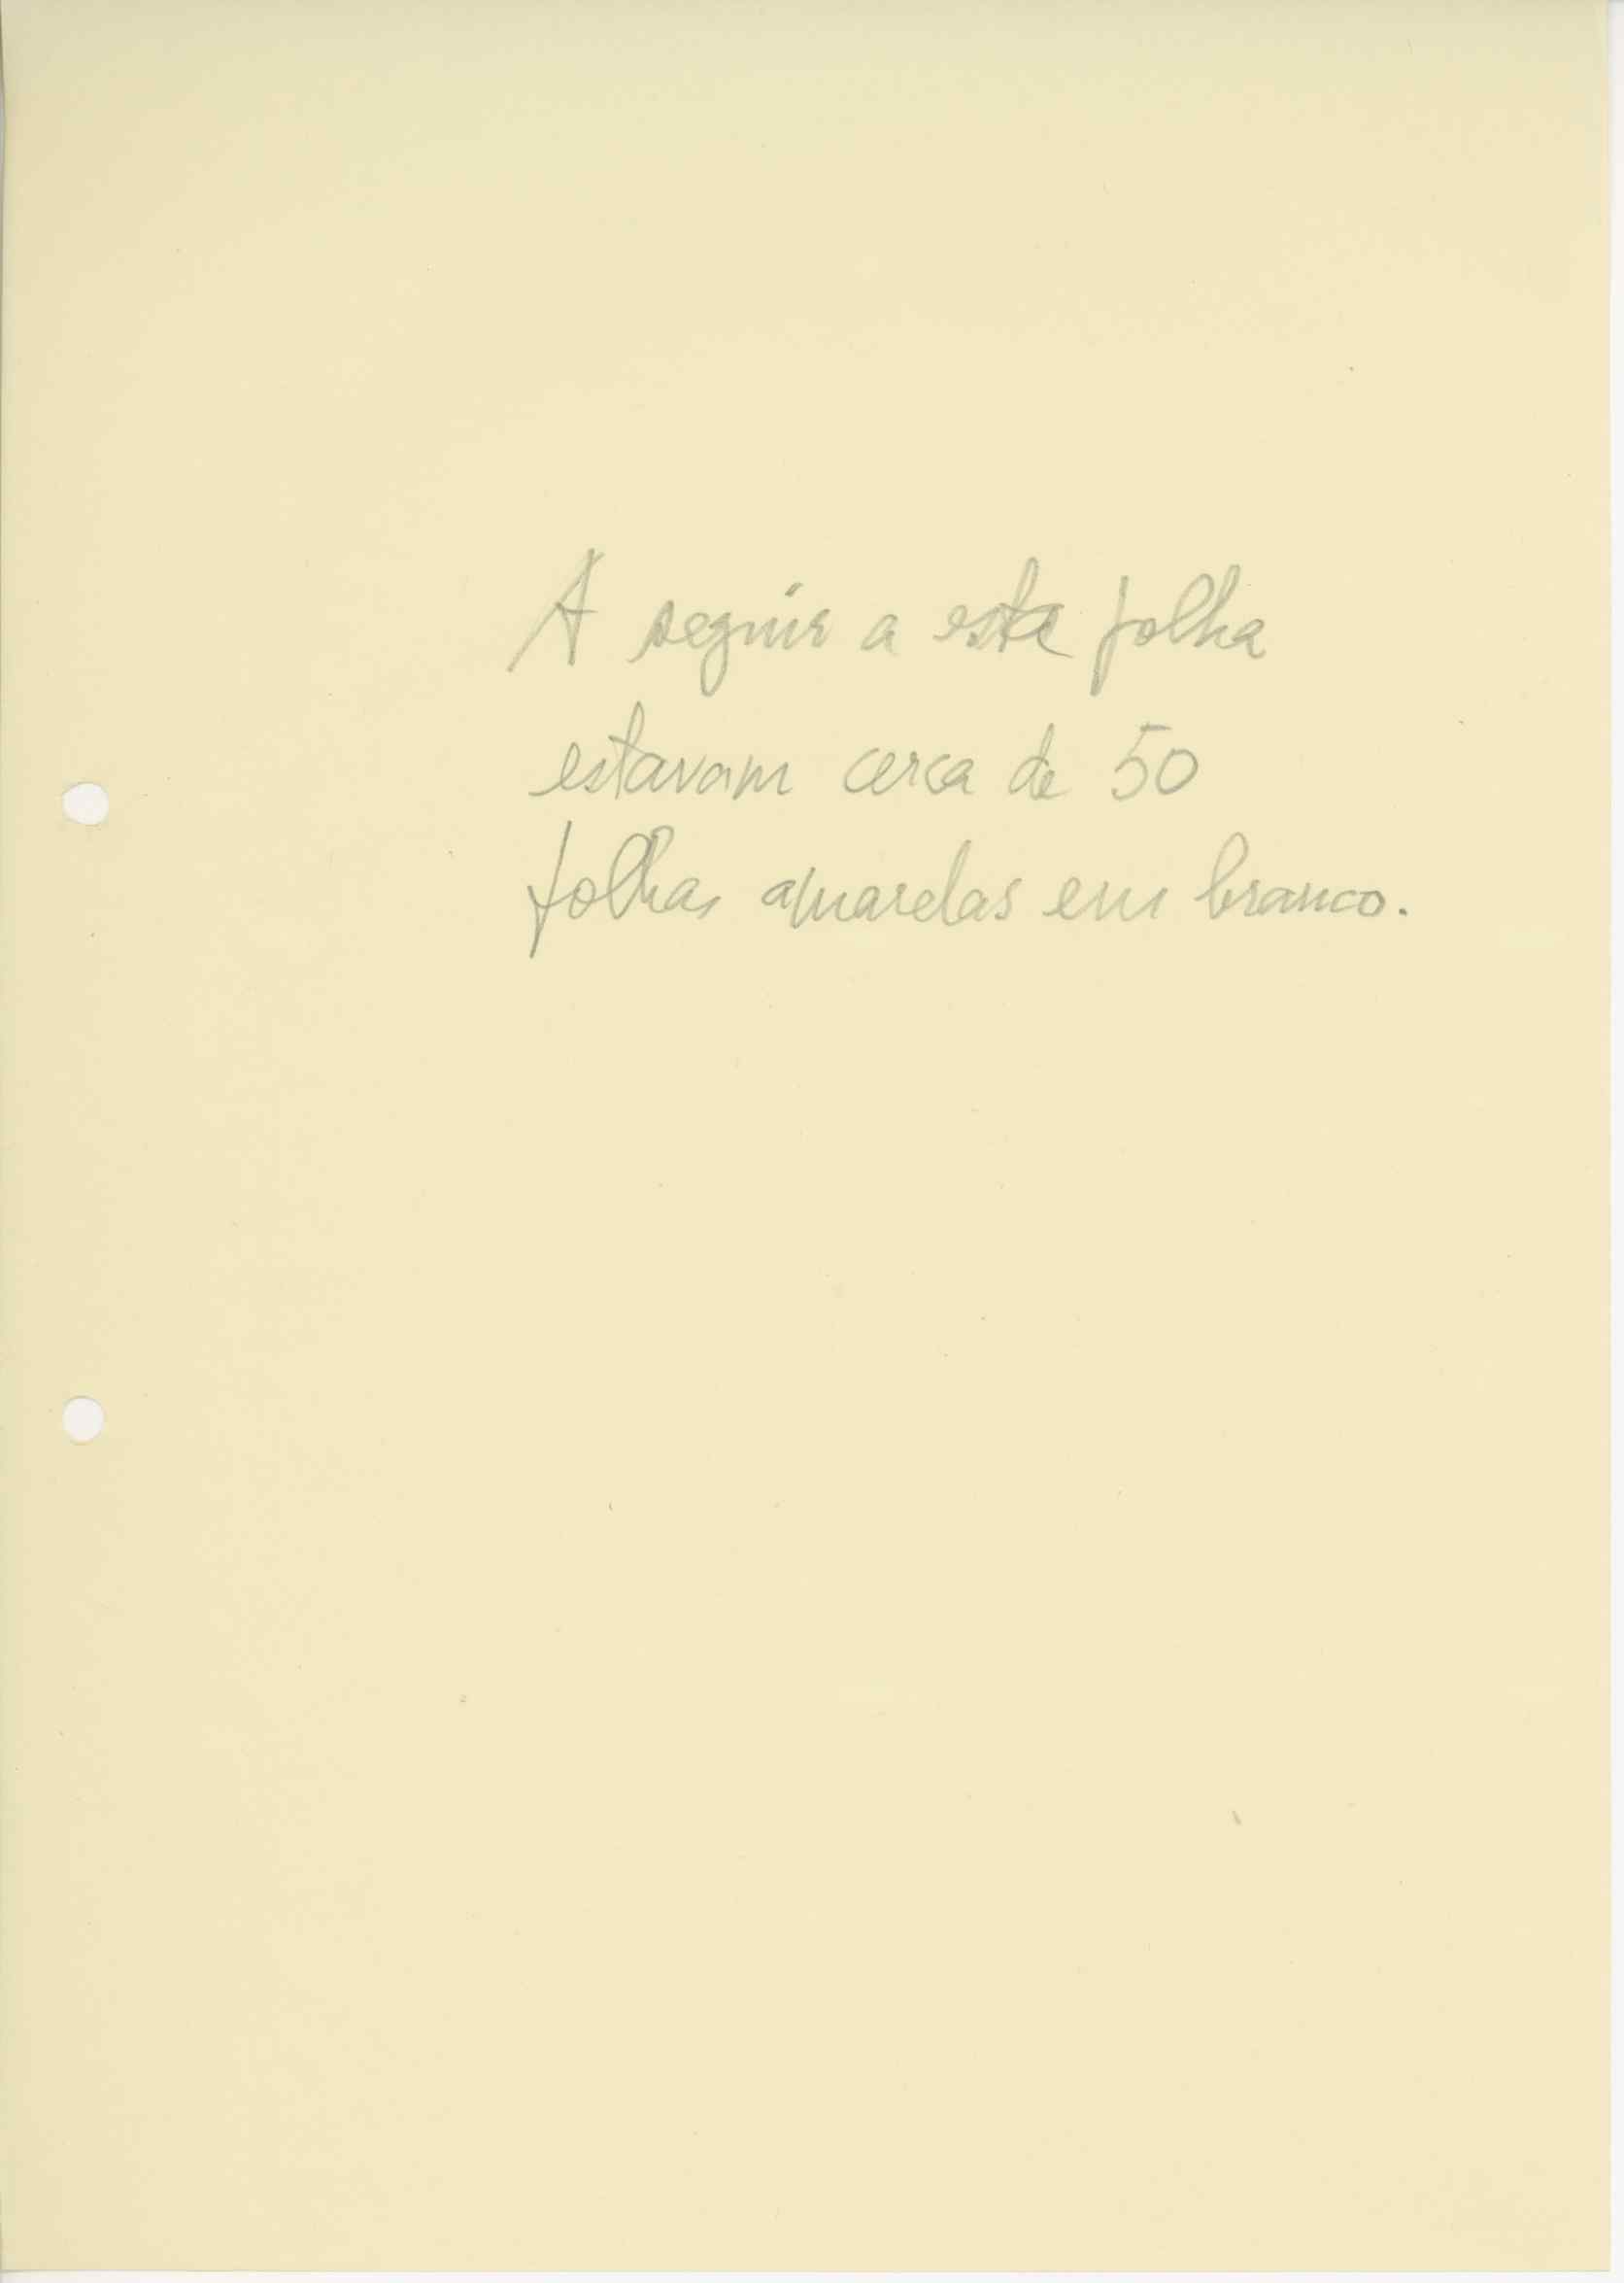 A seguir a esta folha
estavam cerca de 50
folhas amarelas em branco.